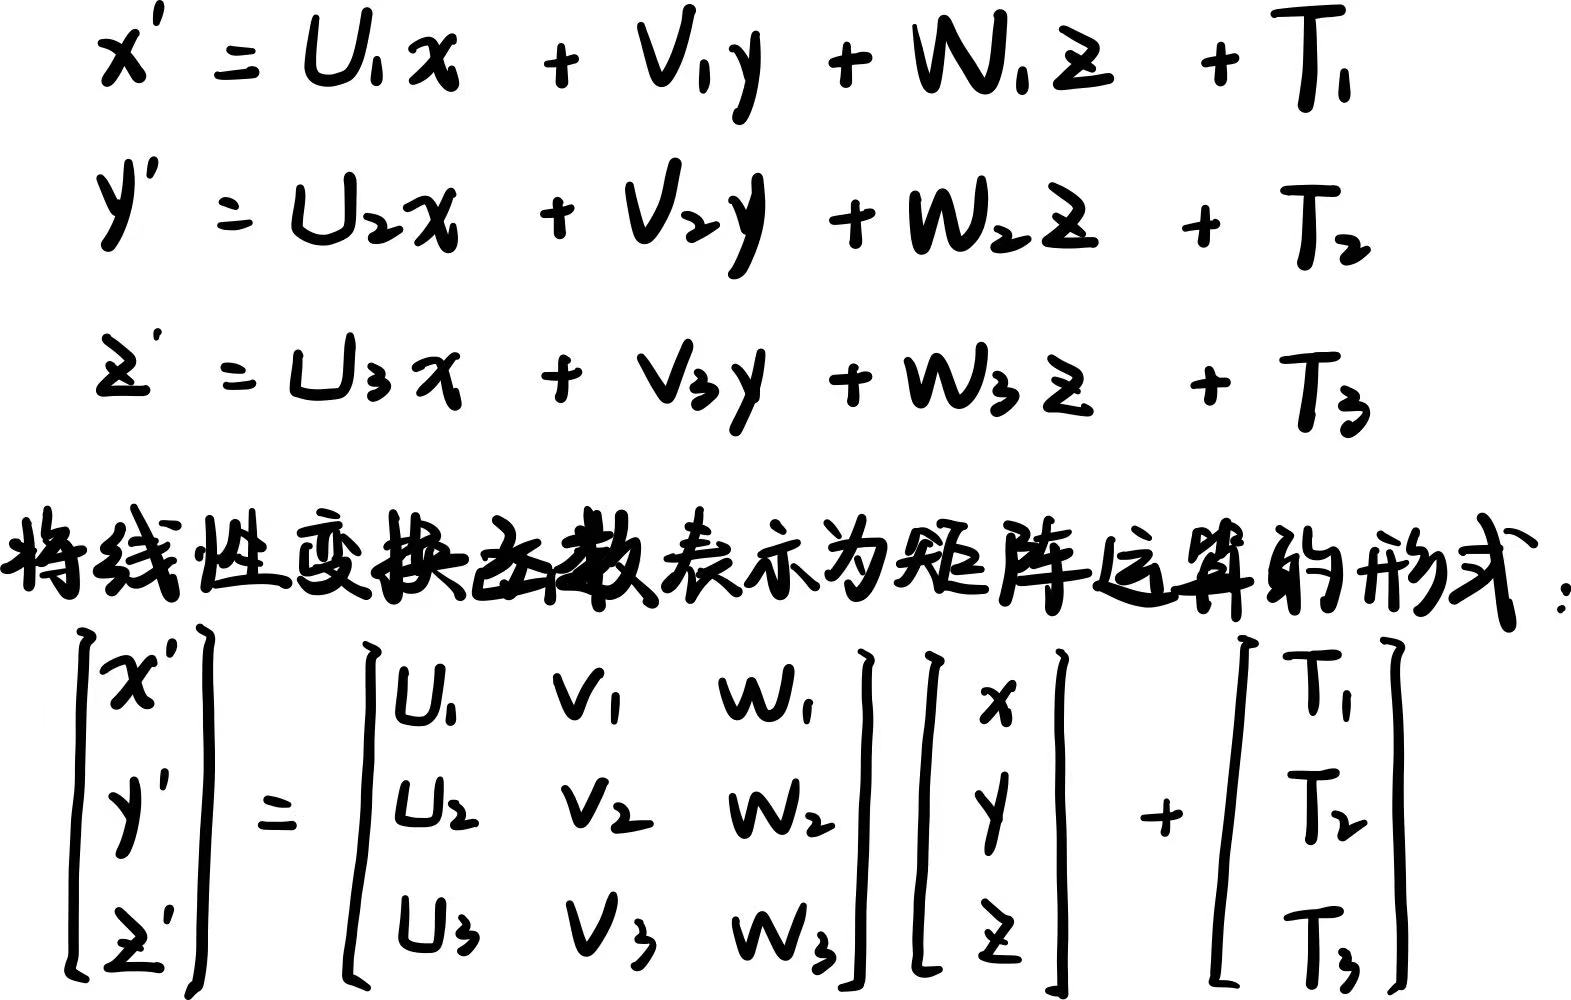 x' = U₁x + V₁y + W₁z + T₁
y' = U₂x + V₂y + W₂z + T₂
z' = U₃x + V₃y + W₃z + T₃
将线性变换函数表示为矩阵运算的形式:
[x' y' z'] = [U₁ V₁ W₁ U₂ V₂ W₂ U₃ V₃ W₃] [x y z] + [T₁ T₂ T₃]